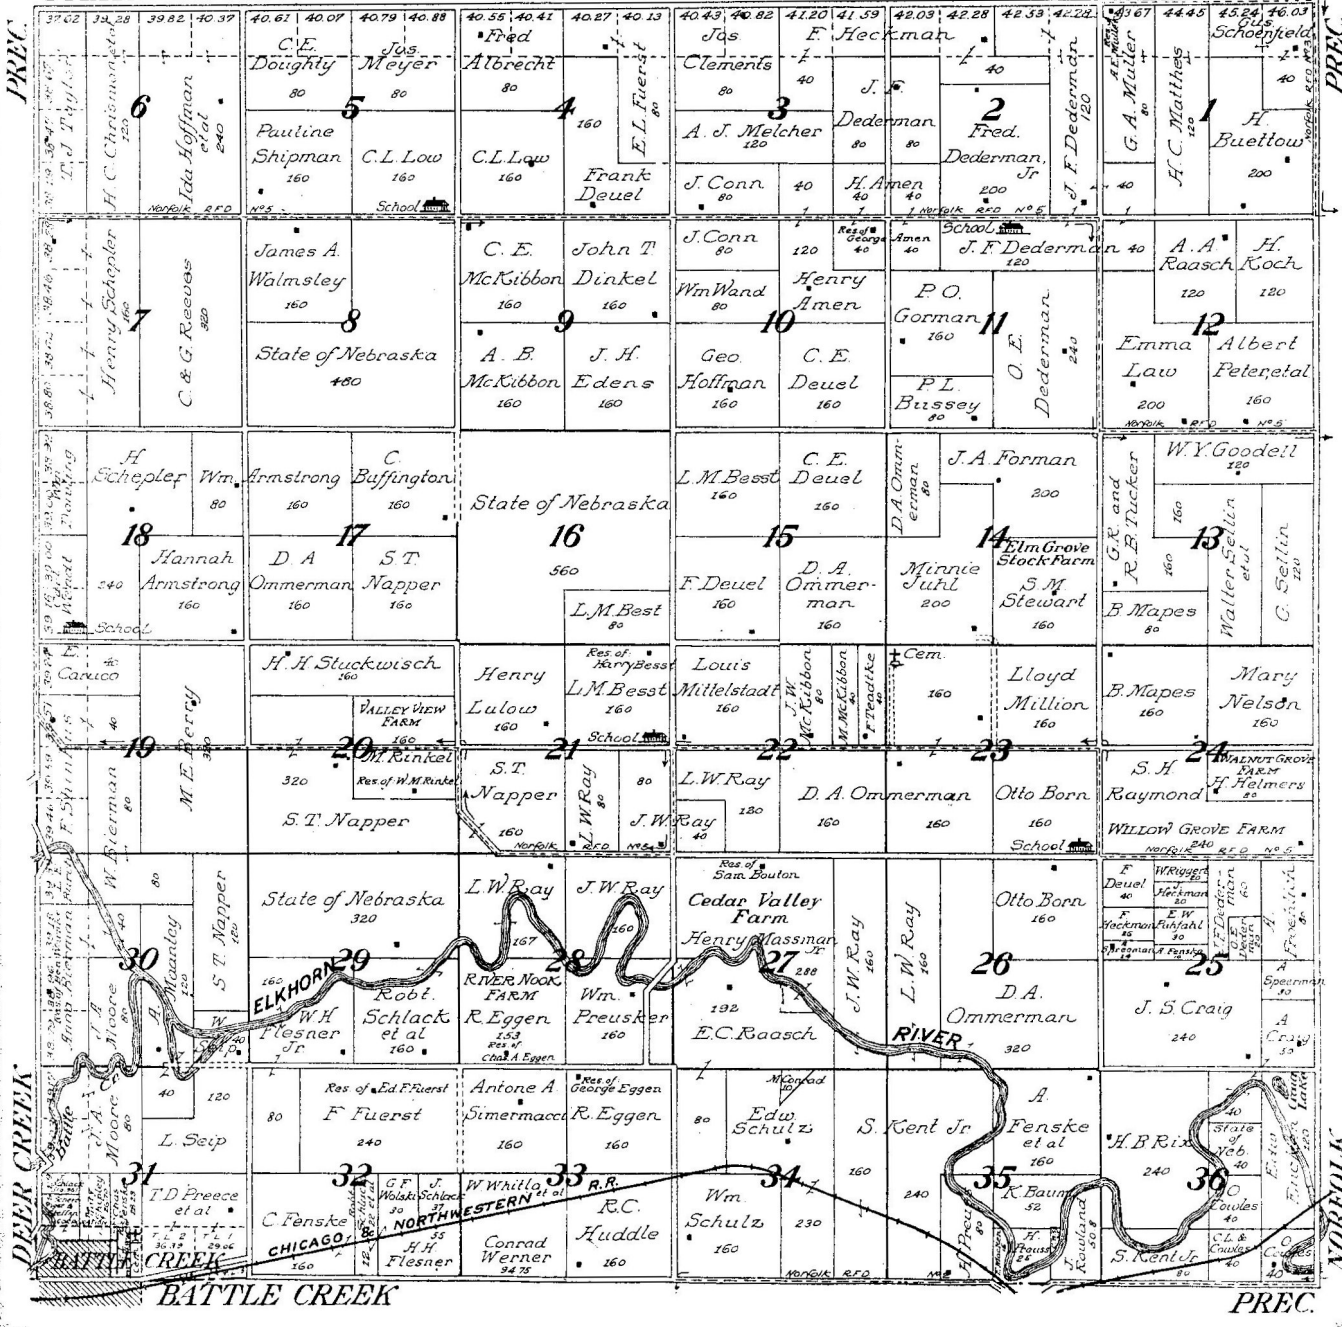 PREC.
PREC.
37.02 39.28 39.82 40.37 40.61 40.07 40.79 40.88 40.55 40.41 40.27 40.13 40.43 40.82 41.20 41.59 42.03 42.28 42.53 42.28 43.67 44.45 45.24 46.03
T. J. Taylor
H. C. Chrisman
120
6
Ida Hoffman
et al
240
Norfolk RFD
C. E.
Doughty
80
Jos.
Meyer
80
5
Pauline
Shipman
160
C. L. Low
160
Nº5
School
Fred
Albrecht
80
4
160
E. L. Fuerst
80
C. L. Low
160
Frank
Deuel
Jos
Clements
80
F. Heckman
40
3
A. J. Melcher
120
J. F.
Dederman
80
80
J. Conn
80
40
H. Amen
40
40
40
2
Fred.
Dederman,
Jr
200
J. F. Dederman
120
Norfolk RFD Nº5
G. A. Muller
80
H. C. Matthes
120
Gus.
Schoenfield
40
1
H.
Buettow
200
40
Norfolk RFD Nº3
Henry Schepler
160
7
C. & G. Reeves
320
James A.
Walmsley
160
8
State of Nebraska
480
C. E.
McKibbon
160
John T.
Dinkel
160
9
A. B.
McKibbon
160
J. H.
Edens
160
J. Conn
80
120
Res. of
George Amen
40
40
Wm Wand
80
Henry
Amen
10
Geo.
Hoffman
160
C. E.
Deuel
160
School
J. F. Dederman
120
P. O.
Gorman
160
11
O. E.
Dederman
240
P. L.
Bussey
80
40
A. A.
Raasch
120
H.
Koch
120
12
Emma
Law
200
Albert
Peter, et al
160
Norfolk RFD Nº5
H
Schepler
Wm. Armstrong
80
160
18
240
Hannah
Armstrong
160
School
C.
Buffington
160
17
D. A
Ommerman
160
S. T.
Napper
160
State of Nebraska
16
560
L. M. Best
80
L. M. Besst
160
C. E.
Deuel
160
15
F. Deuel
160
D. A.
Ommer-
man
160
D. A. Omm-
erman
80
J. A. Forman
200
14
Elm Grove
Stock Farm
Minnie
Juhl
200
S. M.
Stewart
160
G. R. and
R. B. Tucker
160
W. Y. Goodell
120
160
13
Walter Sellin
et al
C. Sellin
120
B. Mapes
80
E.
Caruco
40
40
19
M. E. Berry
320
W. Bierman
80
H. H. Stuckwisch
160
VALLEY VIEW
FARM
160
20
M. Rinkel
Res. of W. M. Rinkel
320
S. T. Napper
Henry
Lulow
160
Res. of
Harry Besst
L. M. Besst
160
School
21
S. T.
Napper
160
L. W. Ray
80
80
J. W. Ray
40
Norfolk RFD Nº5
Louis
Mittelstadt
160
J. W.
McKibbon
80
M. McKibbon
40
F. Teadtke
40
22
L. W. Ray
120
D. A. Ommerman
160
160
Cem.
160
Lloyd
Million
160
23
Otto Born
160
School
B. Mapes
160
Mary
Nelson
160
24
S. H.
Raymond
WALNUT GROVE
FARM
H. Helmers
80
WILLOW GROVE FARM
240
Norfolk RFD Nº5
80
40
30
A. Maanley
120
S. T. Napper
120
J. A.
Moore
80
State of Nebraska
320
29
160
ELKHORN
W. H
Flesner
Jr.
Robt.
Schlack
et al
160
L. W. Ray
167
J. W. Ray
160
28
RIVER NOOK
FARM
R. Eggen
153
Res. of
Chas. A. Eggen
Wm.
Preusker
160
Res. of
Sam Bouton
Cedar Valley
Farm
Henry Massman
Jr
288
27
192
E. C. Raasch
J. W. Ray
160
L. W. Ray
160
Otto Born
160
26
D. A.
Ommerman
320
RIVER
F
Deuel
40
W. Riggert
J.
Heckman
20
F
Heckman
E. W
Puhfahl
30
A. Fenske
60
A
Froehlich
80
25
J. S. Craig
240
A
Speerman
30
A
Craig
DEER CREEK
Battle
J. A.
Moore
80
40
120
L. Seip
31
T. D. Preece
et al
T. L. 2
T. L. 1
29.06
80
Res. of Ed. F. Fuerst
F Fuerst
240
32
C. Fenske
160
G. F
Wolski
30
J.
Schlack
H. H.
Flesner
Antone A
Simermacci
160
Res. of
George Eggen
R. Eggen
160
33
W. Whitla
et al
R.R.
CHICAGO & NORTHWESTERN
Conrad
Werner
94.75
R. C.
Huddle
160
M. Conrad
10
80
Edw.
Schulz
34
160
Wm.
Schulz
160
230
S. Kent Jr
240
Norfolk RFD Nº2
A.
Fenske
et al
160
35
K. Baum
52
H. Preus
80
J.
Rowland
50.8
H. B. Rix
240
40
State
of
Neb.
40
36
O
Cowles
40
C. L. &
Cowles
40
S. Kent Jr.
80
O
Cowles
40
Eric
Eucker
120
Craig
Lake
NORFOLK
BATTLE CREEK
BATTLE CREEK
PREC.